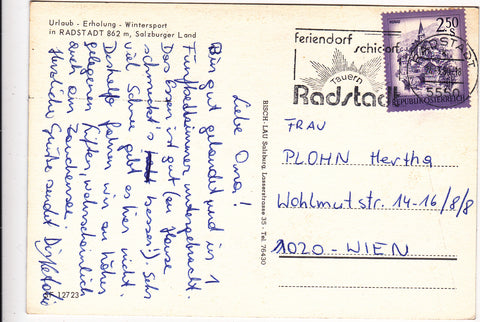 Urlaub - Erholung - Wintersport
in RADSTADT 862 m, Salzburger Land
Liebe Oma!
Bin gut gelandet und in 1
Fünfbettzimmer untergebracht.
Das Essen ist gut (zu Hause
schmeckt's besser!). Sehr
viel Schnee gibt es hier nicht.
Deshalb fahren wir an höher
gelegenen Liften, wahrscheinlich
auch in Zauchensee.
Herzliche Grüße sendet Dir
12723
BISCH-LAU Salzburg Lasserstrasse 35 - Tel. 76430
feriendorf
schi-ort
Tauern
Radstadt
2.50
S
REPUBLIK ÖSTERREICH
RADSTADT
5550
FRAU
PLOHN Hertha
Wohlmutstr. 14-16/8/8
1020-WIEN